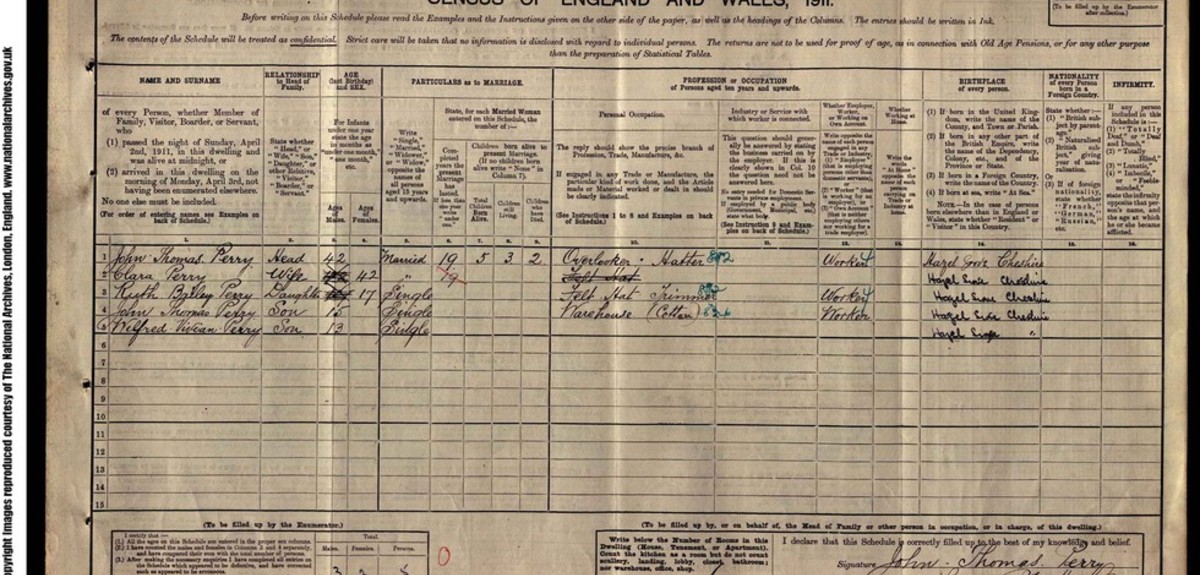 CENSUS OF ENGLAND AND WALES, 1911.
(To be filled up by the Enumerator after collection.)
Before writing on this Schedule please read the Examples and the Instructions given on the other side of the paper, as well as the headings of the Columns. The entries should be written in Ink.
The contents of the Schedule will be treated as confidential. Strict care will be taken that no information is disclosed with regard to individual persons. The returns are not to be used for proof of age, as in connection with Old Age Pensions, or for any other purpose
than the preparation of Statistical Tables.
NAME AND SURNAME
RELATIONSHIP to Head of Family.
AGE (last Birthday) and SEX.
PARTICULARS as to MARRIAGE.
PROFESSION or OCCUPATION
of Persons aged ten years and upwards.
BIRTHPLACE of every person.
NATIONALITY of every Person born in a Foreign Country.
INFIRMITY.
of every Person, whether Member of
Family, Visitor, Boarder, or Servant,
who
(1) passed the night of Sunday, April
2nd, 1911, in this dwelling and
was alive at midnight, or
(2) arrived in this dwelling on the
morning of Monday, April 3rd, not
having been enumerated elsewhere.
No one else must be included.
(For order of entering names see Examples on
back of Schedule.)
State whether "Head," or "Wife," "Son," "Daughter," or other Relative, "Visitor," "Boarder," or "Servant."
For Infants under one year state the age in months as "under one month," "one month," etc.
Ages of Males.
Ages of Females.
Write "Single," "Married," "Widower," or "Widow," opposite the names of all persons aged 15 years and upwards.
State, for each Married Woman entered on this Schedule, the number of:—
Completed years the present Marriage has lasted. If less than one year write "under one."
Children born alive to present Marriage. (If no children born alive write "None" in Column 7).
Total Children Born Alive.
Children still Living.
Children who have Died.
Personal Occupation.
The reply should show the precise branch of Profession, Trade, Manufacture, &c.
If engaged in any Trade or Manufacture, the particular kind of work done, and the Article made or Material worked or dealt in should be clearly indicated.
(See Instructions 1 to 8 and Examples on back of Schedule.)
Industry or Service with which worker is connected.
This question should generally be answered by stating the business carried on by the employer. If this is clearly shown in Col. 10 the question need not be answered here.
No entry needed for Domestic Servants in private employment. If employed by a public body (Government, Municipal, etc.) state what body.
(See Instruction 9 and Examples on back of Schedule.)
Whether Employer, Worker, or Working on Own Account.
Whether Working at Home.
(1) If born in the United Kingdom, write the name of the County, and Town or Parish.
(2) If born in any other part of the British Empire, write the name of the Dependency, Colony, etc., and of the Province or State.
(3) If born in a Foreign Country, write the name of the Country.
(4) If born at sea, write "At Sea."
NOTE.—In the case of persons born elsewhere than in England or Wales, state whether "Resident" or "Visitor" in this Country.
State whether:—
(1) "British subject by parentage."
(2) "Naturalised British subject," giving year of naturalisation.
Or
(3) If of foreign nationality, state whether "French," "German," "Russian," etc.
If any person included in this Schedule is:—
(1) "Totally Deaf," or "Deaf and Dumb,"
(2) "Totally Blind,"
(3) "Lunatic,"
(4) "Imbecile," or "Feeble-minded,"
state the infirmity opposite that person's name, and the age at which he or she became afflicted.
1. 2. 3. 4. 5. 6. 7. 8. 9. 10. 11. 12. 13. 14. 15. 16.
1 John Thomas Perry Head 42 Married 19 5 3 2 Overlooker · Hatter 892 Worker Cheshire
2 Clara Perry Wife 42 " 19 Felt Hat Hazel Cheshire
3 Ruth Bailey Perry Daughter 17 Single Felt Hat Trimmer Worker Hazel Cheshire
4 John Thomas Perry Son 15 Single Warehouse (Cotton) Worker Hazel Cheshire
5 Wilfred Vivian Perry Son 13 Single Hazel "
6
7
8
9
10
11
12
13
14
15
(To be filled up by the Enumerator.)
(To be filled up by, or on behalf of, the Head of Family or other person in occupation, or in charge, of this dwelling.)
I certify that:—
(1.) All the ages on this Schedule are entered in the proper sex columns.
(2.) I have counted the males and females in Columns 3 and 4 separately, and have compared their sum with the total number of persons.
(3.) After making the necessary enquiries I have completed all entries on the Schedule which appeared to be defective, and have corrected such as appeared to be erroneous.
Total.
Males. Females. Persons.
3 2 5
0
Write below the Number of Rooms in this Dwelling (House, Tenement, or Apartment). Count the kitchen as a room but do not count scullery, landing, lobby, closet, bathroom; nor warehouse, office, shop.
I declare that this Schedule is correctly filled up to the best of my knowledge and belief.
Signature John Thomas Perry
Copyright Images reproduced courtesy of The National Archives, London, England. www.nationalarchives.gov.uk